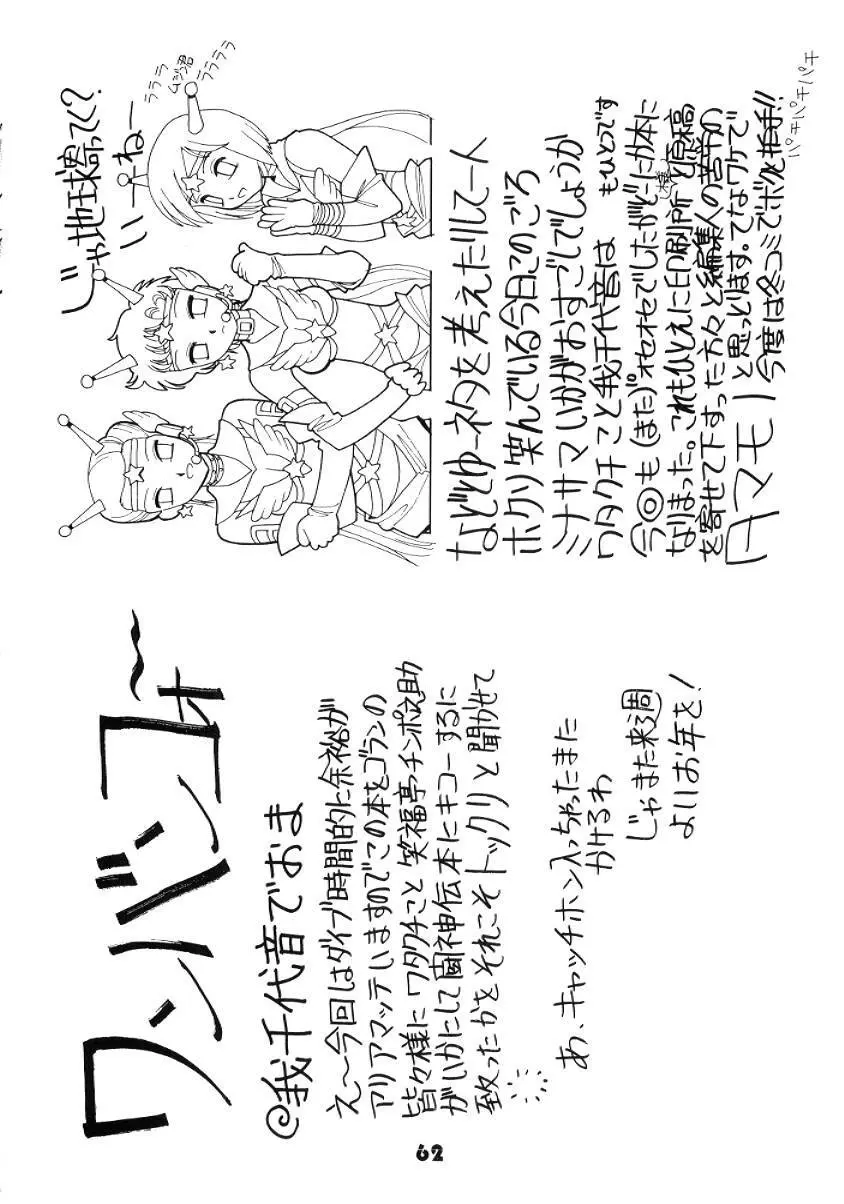 ワンバンコォ〜
@我千代音でおま
え〜今回はダイブ時間的に余裕が
アリアマッテいますのでこの本をゴランの
皆々様にワタクチこと笑福亭チンポ之助
がいかにして闘神伝本にキコーするに
致ったかをそれこそトックリと聞かせて
あ、キャッチホン入っちゃったまた
かけるわ
じゃまた来週
よいお年を!
じゃ地球捨ってく?
いーねー
ラララ
ムジン君
ララララ
などとゆーネタを考えたりして一人
ホクリ笑んでいる今日このごろ
ミナサマいかがおすごしでしょうか
ワタクチこと我千代音は
もひとつです
今回も(また)オセオセでしたがどーにか本に
なりまった。これもひとえに印刷所(爆)と原稿
を寄せて下すった方々と編集人の苦労の
タマモノ
と思っとります。てなワケで
今度は冬コミでボクと拍手!!
パチパチパチパチ
62